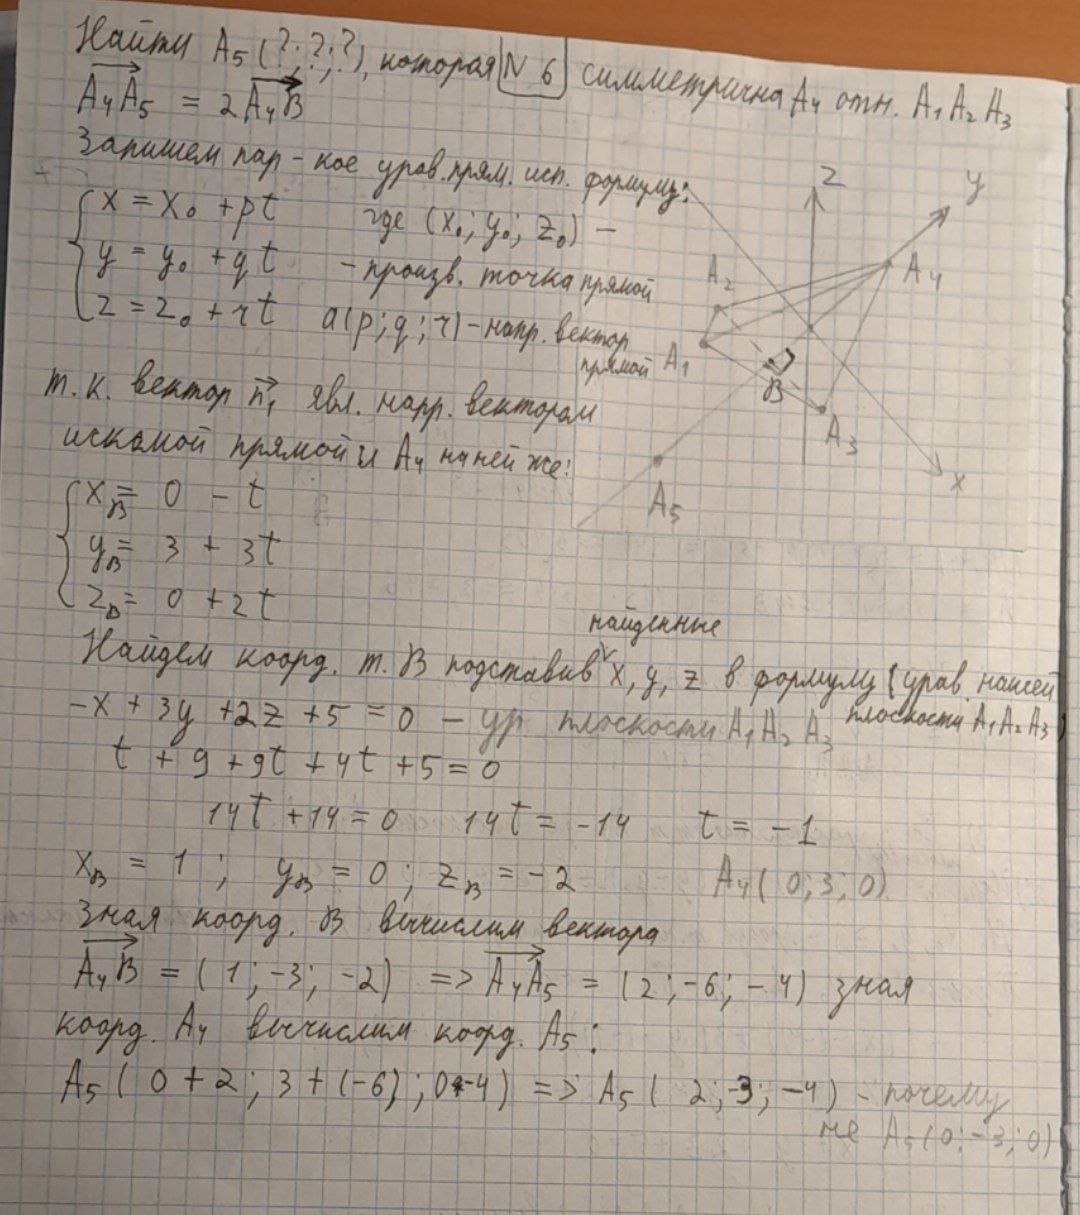 Найти A₅(?;?;?), которая N 6 симметрична A₄ отн. A₁A₂A₃
A₄A₅ = 2A₄B
Запишем пар-кое урав. прям. исп. формулу:
x = x₀ + pt где (x₀; y₀; z₀) –
y = y₀ + qt – произв. точка прямой
z = z₀ + rt a(p; q; r) – напр. вектор
прямой
z
y
A₂
A₄
A₁
B
A₃
x
A₅
т.к. вектор n₁ явл. напр. вектором
искомой прямой и A₄ на ней же:
x_B = 0 - t
y_B = 3 + 3t
z_B = 0 + 2t
найденные
Найдем коорд. т. B подставив x, y, z в формулу (урав. нашей
плоскости A₁A₂A₃)
-x + 3y + 2z + 5 = 0 – ур плоскости A₁A₂A₃
t + 9 + 9t + 4t + 5 = 0
14t + 14 = 0 14t = -14 t = -1
x_B = 1; y_B = 0; z_B = -2 A₄(0; 3; 0)
Зная коорд. B вычислим вектора
A₄B = (1; -3; -2) => A₄A₅ = (2; -6; -4) зная
коорд. A₄ вычислим коорд. A₅:
A₅(0 + 2; 3 + (-6); 0-4) => A₅(2; -3; -4) – почему
не A₅(0; -3; 0)